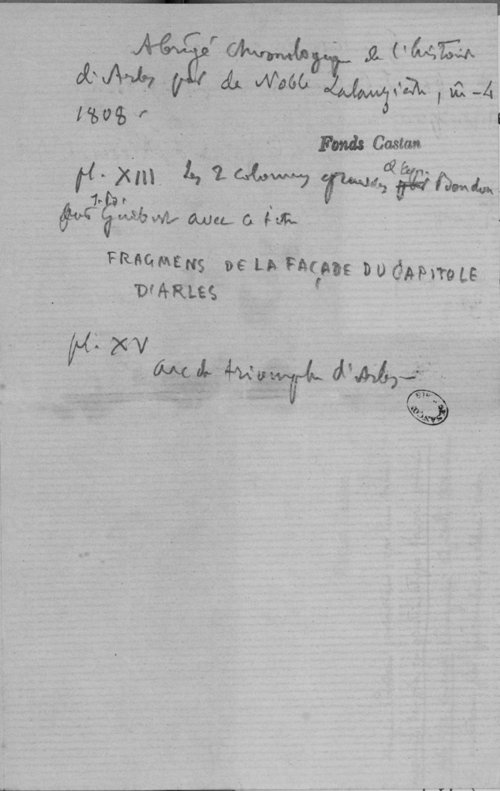 Abrégé chronologique de l'histoire
d'Arles par de Noble Lalauzière, in-4
1808.
Fonds Castan
pl. XIII les 2 colonnes gravées d'après Bondon
par J. Bte. Guibert avec ce titre
FRAGMENS DE LA FAÇADE DU CAPITOLE
D'ARLES
pl. XV
arc de triomphe d'Arles